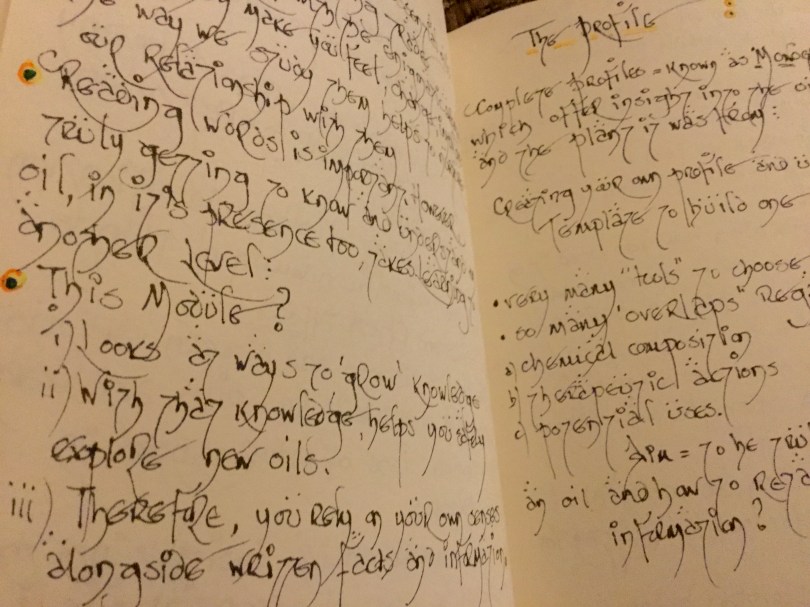 the way we study them helps
our relationship with them
Reading words is important. However
truly getting to know and understand
oil, in its presence too, takes learning to
another level:
This Module?
i) Looks at ways to 'grow' knowledge
ii) With that knowledge, helps you safely
explore new oils.
iii) Therefore, you rely on your own senses
alongside written facts and information,
The profile
Complete profiles = known as
which offer insight into the
and the plant it was from:
Creating your own profile and
Template to build one
• very many "tools" to choose
• so many "overlaps"
a) chemical composition
b) therapeutic actions
c) potential uses.
Aim = to be
an oil and how to
information?